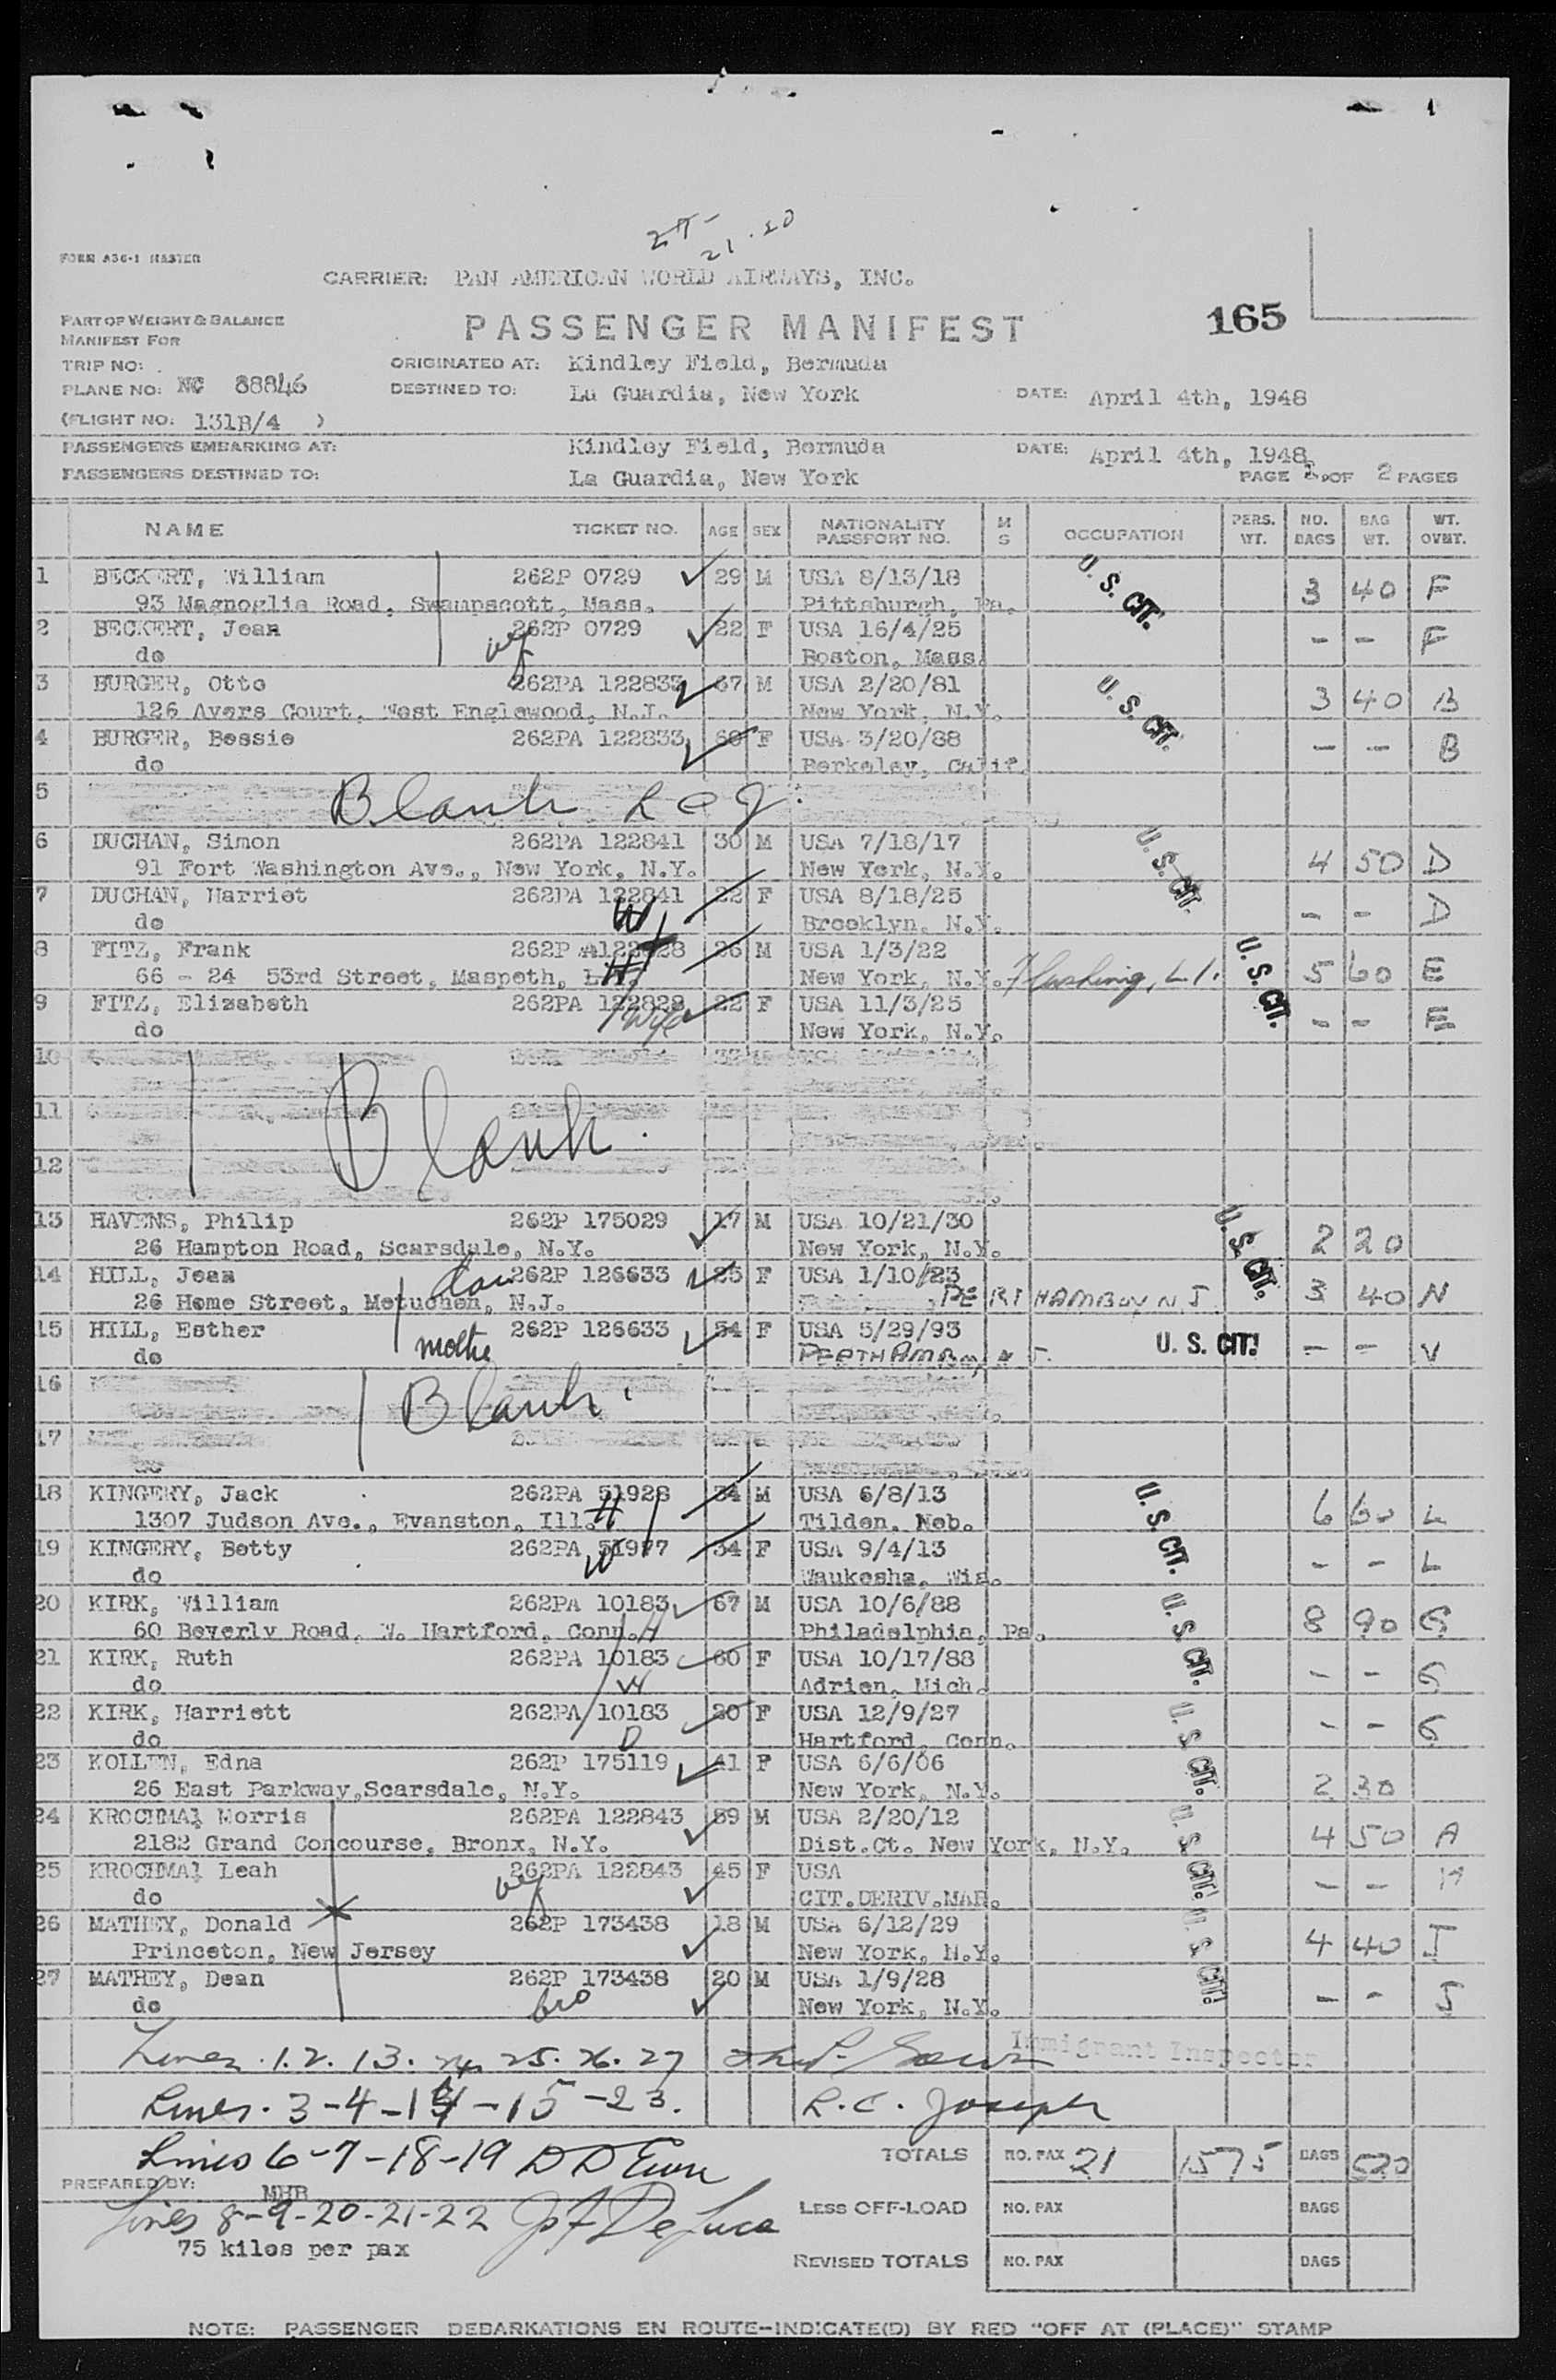 FORM A36-1 MASTER
CARRIER: PAN AMERICAN WORLD AIRWAYS, INC.
PART OF WEIGHT & BALANCE
MANIFEST FOR
PASSENGER MANIFEST
165
TRIP NO:
ORIGINATED AT: Kindley Field, Bermuda
PLANE NO: NC 88846
DESTINED TO: La Guardia, New York
DATE: April 4th, 1948
(FLIGHT NO: 131B/4 )
PASSENGERS EMBARKING AT: Kindley Field, Bermuda
DATE: April 4th, 1948
PASSENGERS DESTINED TO: La Guardia, New York
PAGE OF 2 PAGES
NAME TICKET NO. AGE SEX NATIONALITY PASSPORT NO. M S OCCUPATION PERS. WT. NO. BAGS BAG WT. WT. OVHT.
1 BECKERT, William 262P 0729 29 M USA 8/13/18 U. S. CIT. 3 40 F
93 Magnoglia Road, Swampscott, Mass. Pittsburgh, Pa.
2 BECKERT, Jean 262P 0729 22 F USA 16/4/25 - - F
do Boston, Mass.
3 BURGER, Otto 262PA 122833 67 M USA 2/20/81 U. S. CIT. 3 40 B
126 Ayers Court, West Englewood, N.J. New York, N.Y.
4 BURGER, Bessie 262PA 122833 60 F USA 3/20/88 - - B
do Berkeley, Calif.
5 Blank
6 DUCHAN, Simon 262PA 122841 30 M USA 7/18/17 U. S. CIT. 4 50 D
91 Fort Washington Ave., New York, N.Y. New York, N.Y.
7 DUCHAN, Harriet 262PA 122841 22 F USA 8/18/25 - - D
do W Brooklyn, N.Y.
8 FITZ, Frank 262P 26 M USA 1/3/22 U. S. CIT. 5 60 E
66 - 24 53rd Street, Maspeth, L.I. H New York, N.Y. Flushing, L.I.
9 FITZ, Elizabeth 262PA 122828 22 F USA 11/3/25 - - E
do Wife New York, N.Y.
10
11 Blank.
12
13 HAVENS, Philip 262P 175029 17 M USA 10/21/30 U. S. CIT. 2 20
26 Hampton Road, Scarsdale, N.Y. New York, N.Y.
14 HILL, Jean dau 262P 126633 25 F USA 1/10/23 3 40 N
26 Home Street, Metuchen, N.J. PERTH AMBOY N. J.
15 HILL, Esther 262P 126633 54 F USA 5/29/93 U. S. CIT. - - V
do mother PERTH AMBOY, N. J.
16 Blank
17
18 KINGERY, Jack 262PA 51928 34 M USA 6/8/13 U. S. CIT. 6 60 L
1307 Judson Ave., Evanston, Ill. H Tilden, Neb.
19 KINGERY, Betty 262PA 51977 34 F USA 9/4/13 - - L
do W Waukesha, Wis.
20 KIRK, William 262PA 10183 67 M USA 10/6/88 U. S. CIT. 8 90 G
60 Beverly Road, W. Hartford, Conn. H Philadelphia, Pa.
21 KIRK, Ruth 262PA 10183 60 F USA 10/17/88 - - G
do W Adrien, Mich.
22 KIRK, Harriett 262PA 10183 20 F USA 12/9/27 U. S. CIT. - - G
do D Hartford, Conn.
23 KOLLEN, Edna 262P 175119 41 F USA 6/6/06 2 30
26 East Parkway, Scarsdale, N.Y. New York, N.Y.
24 KROCHMAL Morris 262PA 122843 59 M USA 2/20/12 U. S. CIT. 4 50 A
2182 Grand Concourse, Bronx, N.Y. Dist.Ct. New York, N.Y.
25 KROCHMAL Leah 262PA 122843 45 F USA - -
do CIT.DERIV.MAR.
26 MATHEY, Donald 262P 173438 18 M USA 6/12/29 U. S. CIT. 4 40 J
Princeton, New Jersey New York, N.Y.
27 MATHEY, Dean 262P 173438 20 M USA 1/9/28 - - J
do bro New York, N.Y.
Lines. 1. 2. 13. 24. 25. 26. 27 Immigrant Inspector
Lines. 3-4-14-15-23. R. C. Joseph
Lines 6-7-18-19
TOTALS NO. PAX 21 1575 BAGS 520
PREPARED BY: MHB
Lines 8-9-20-21-22 DeLuca
LESS OFF-LOAD NO. PAX BAGS
75 kilos per pax
REVISED TOTALS NO. PAX BAGS
NOTE: PASSENGER DEBARKATIONS EN ROUTE--INDICATE(D) BY RED "OFF AT (PLACE)" STAMP